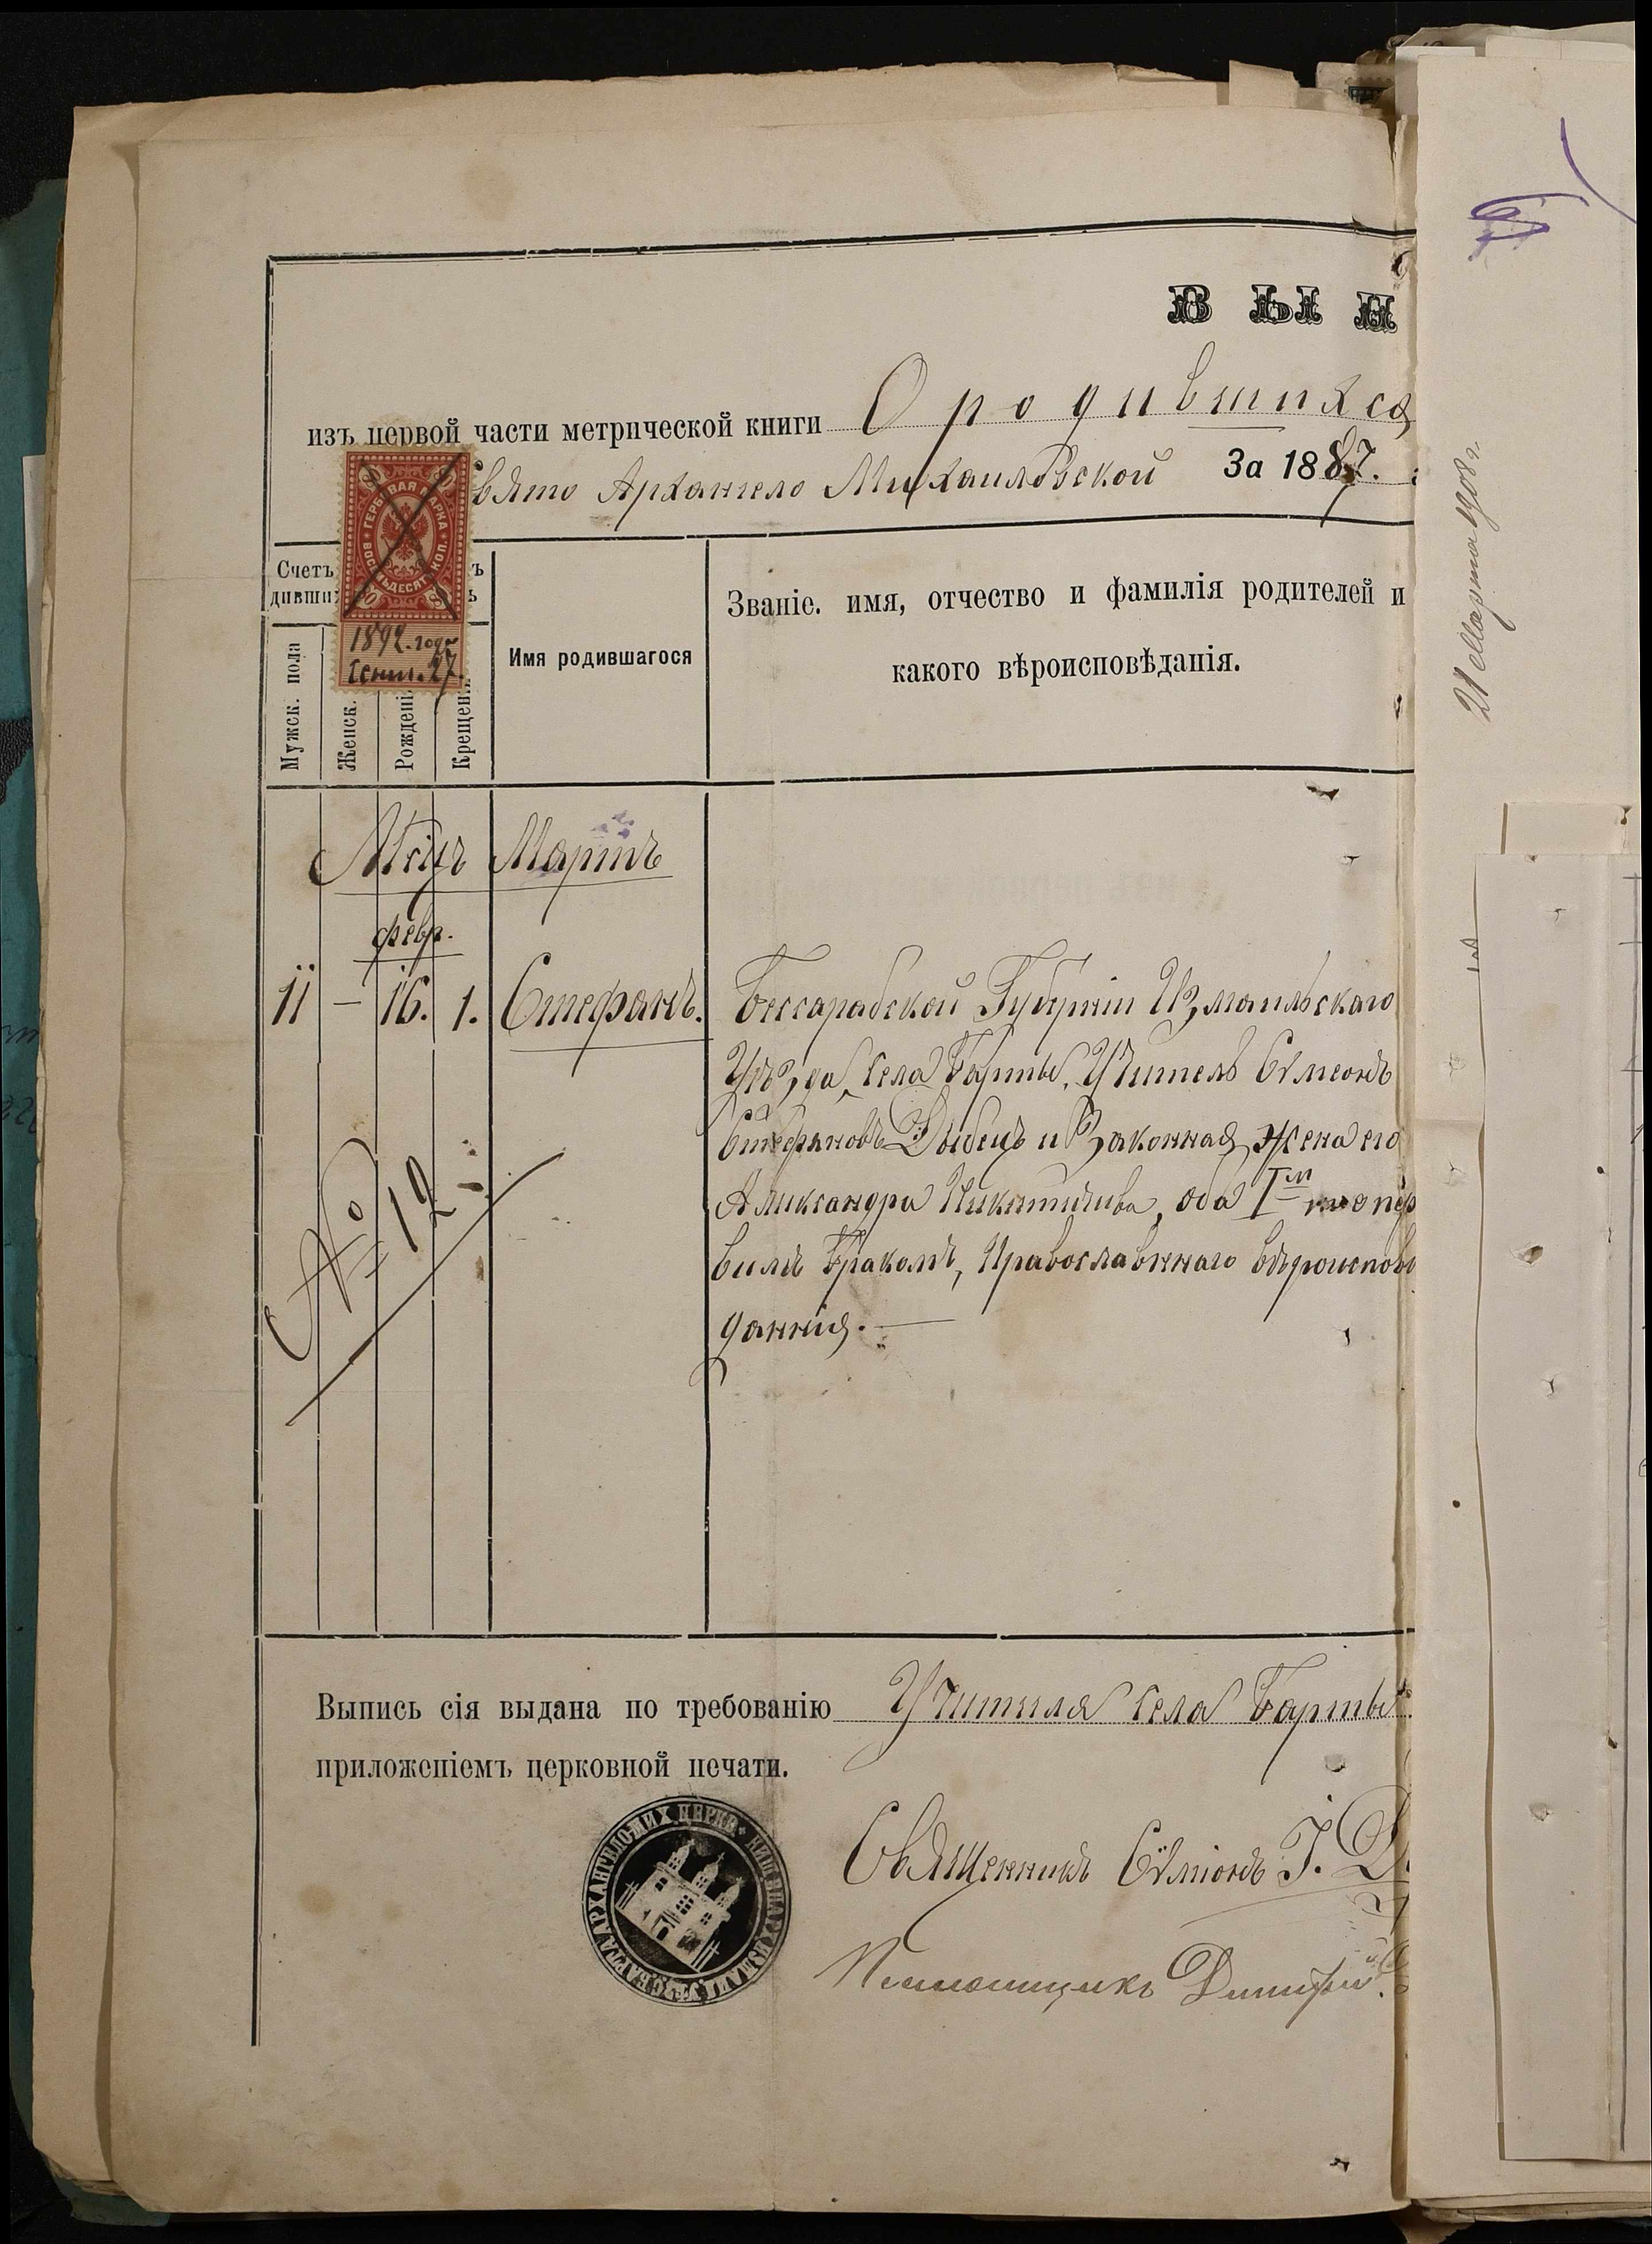 ВЫП
изъ первой части метрической книги О родившихся
Свято Архангело Михаиловской За 1887.
ГЕРБОВАЯ МАРКА
ВОСЕМЬДЕСЯТЪ КОП.
80 80
80 80
1892. года
27.
Счетъ
дивши
ъ
ь
Мужск. пола
Женск.
Рожденi
Крещен
Имя родившагося
Званіе. имя, отчество и фамилія родителей и
какого вѣроисповѣданія.
Мсцъ Мартъ
февр.
11 – 16. 1. Стефанъ.
Бессарабской Губерніи Измаильскаго
Уѣзда, села Барты, Учитель Сѵмеонъ
Стефановъ Дыбецъ и Законная жена его
Александра Никитичива, оба Iм пер
вымъ бракомъ, Православннаго вѣроиспов
данния. —
№ 12
Выпись сія выдана по требованію Учителя села Барты
приложеніемъ церковной печати.
Священникъ Сѵміонъ І. Д
Димитрий
21 Марта 1908 г.